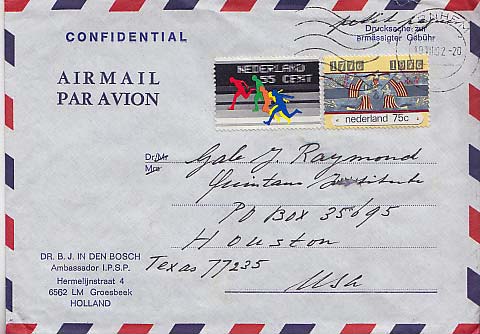 CONFIDENTIAL
petit paquet
Drucksache zur
ermässigter Gebühr
NHEIM
AIRMAIL
PAR AVION
NEDERLAND
55 CENT
1776 1976
nederland 75c
Dr/Mr Gale J. Raymond
Mrs Quintans Institute
PO Box 35695
Houston
Texas 77235
USA
DR. B. J. IN DEN BOSCH
Ambassador I.P.S.P.
Hermelijnstraat 4
6562 LM Groesbeek
HOLLAND